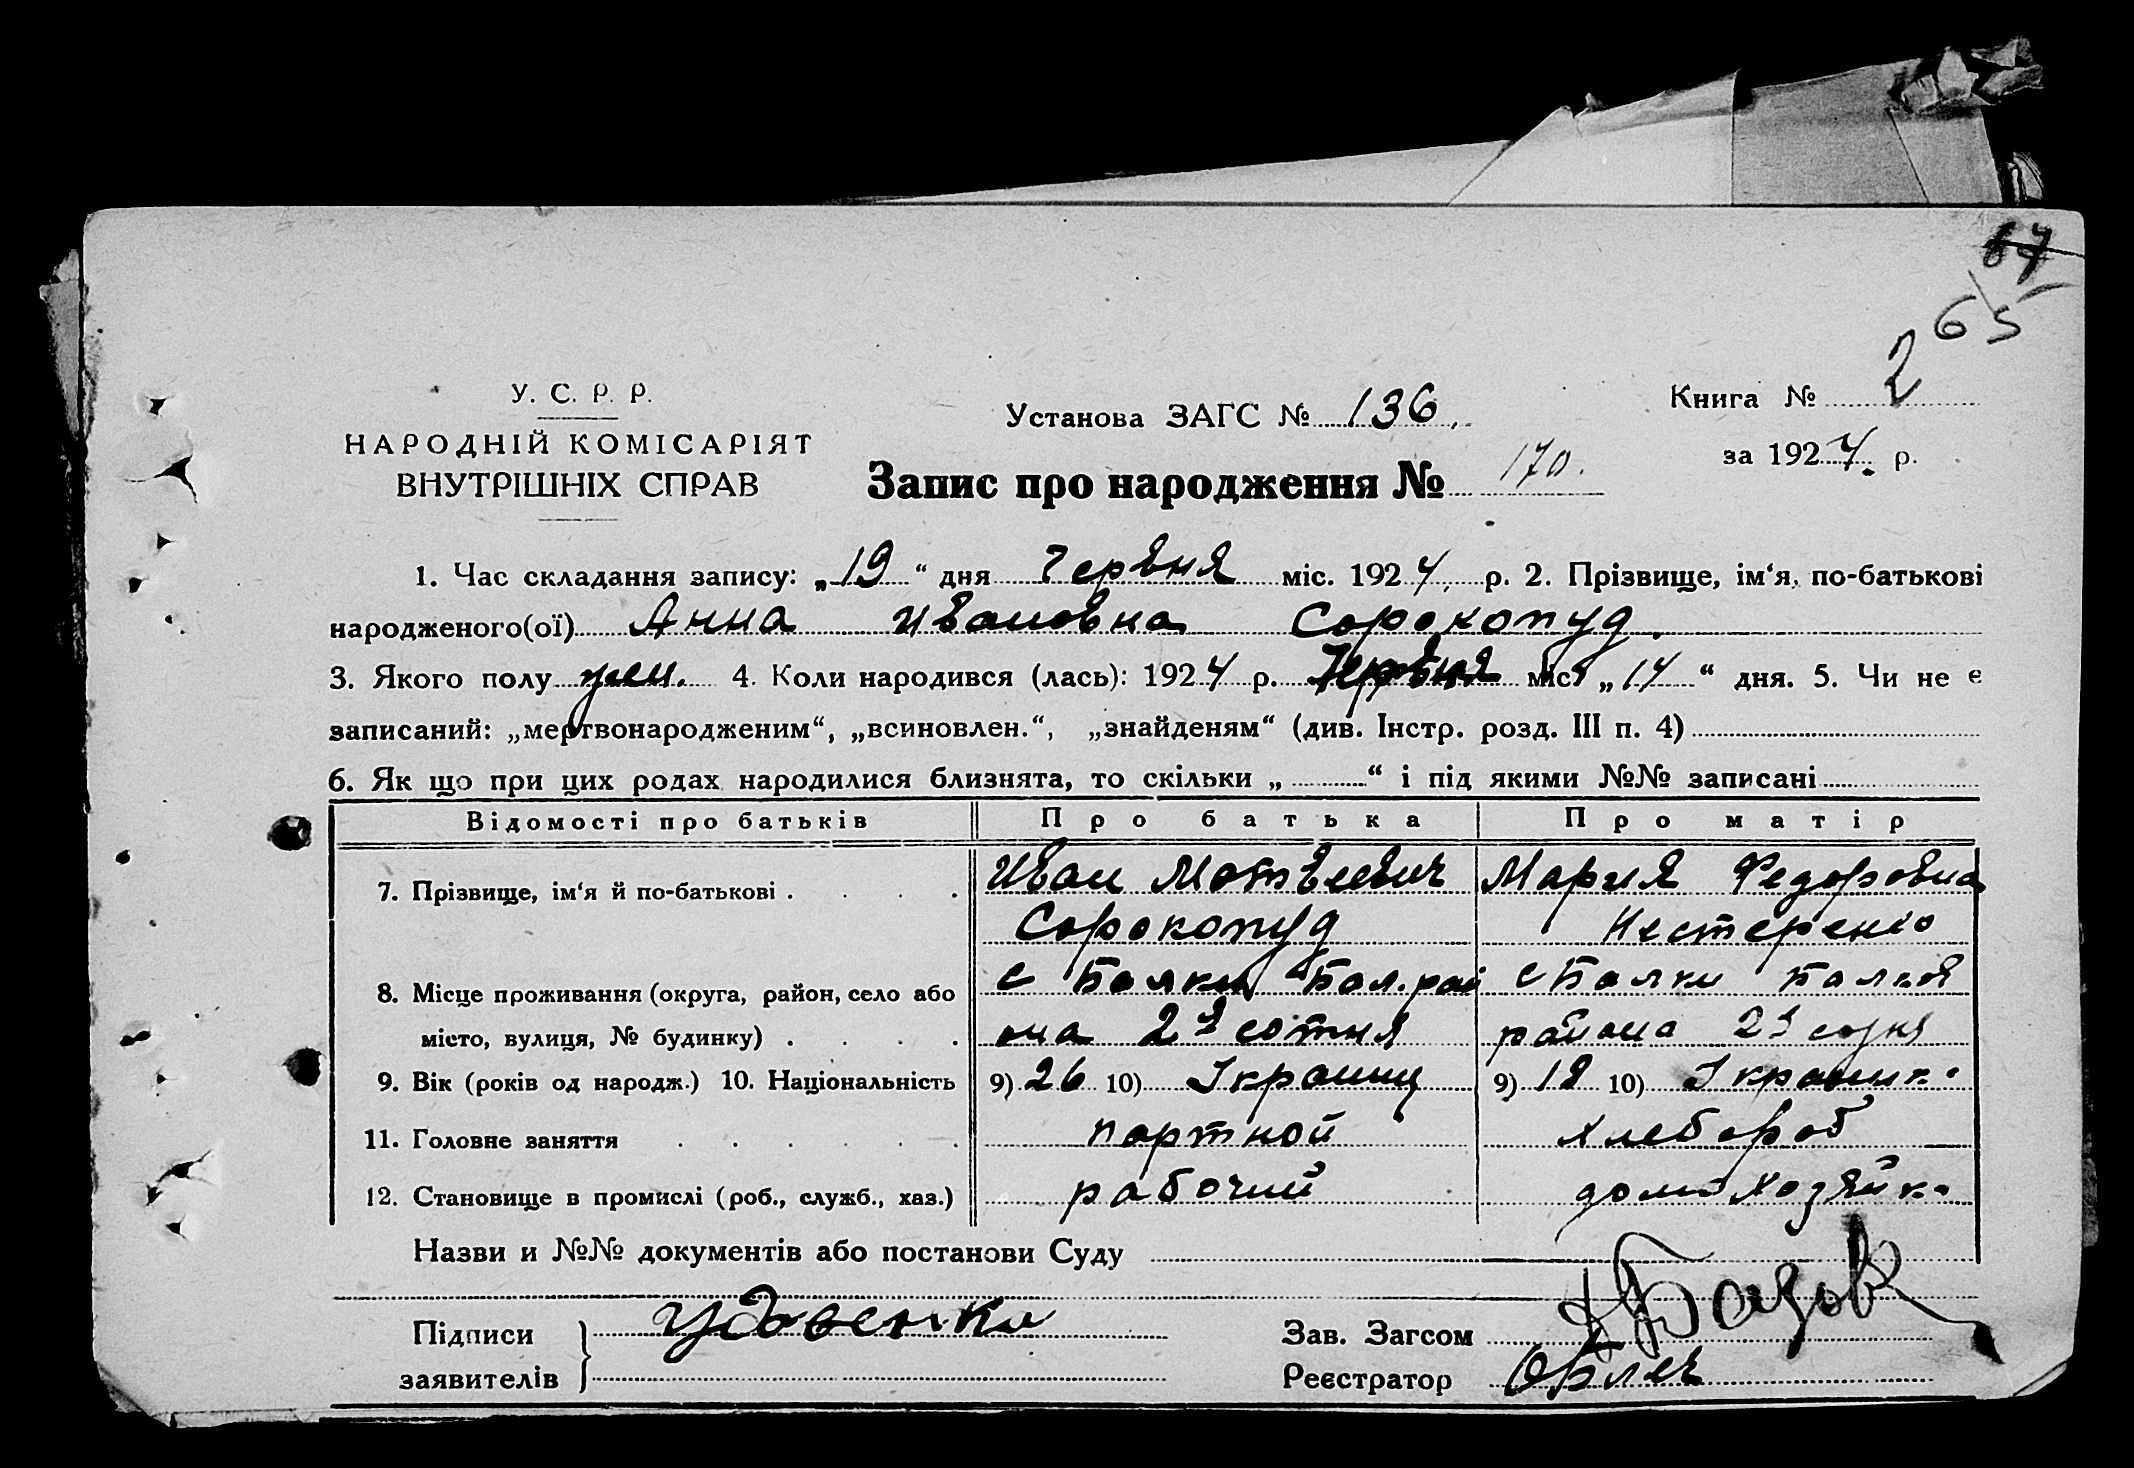 67
65
У. С. Р. Р.
НАРОДНІЙ КОМІСАРІЯТ
ВНУТРІШНІХ СПРАВ
Установа ЗАГС № 136
Книга № 2
за 1924 р.
Запис про народження № 170.
1. Час складання запису: „19“ дня Червня міс. 1924 р. 2. Прізвище, ім‘я, по-батькові
народженого(ої) Анна Ивановна Сорокопуд.
3. Якого полу жен. 4. Коли народився (лась): 1924 р. Червня міс „14“ дня. 5. Чи не є
записаний: „мертвонародженим“, „всиновлен.“, „знайденям“ (див. Інстр. розд. III п. 4)
6. Як що при цих родах народилися близнята, то скільки „ “ і під якими №№ записані
Відомості про батьків Про батька Про матір
7. Прізвище, ім‘я й по-батькові Иван Матвеевич Мария Федоровна
Сорокопуд Нестеренко
с Балки Бал. рай с Балки Балков
8. Місце проживання (округа, район, село або
місто, вулиця, № будинку) она 2я сотня района 2я сотня
9. Вік (років од народж.) 10. Національність 9) 26 10) Украинц 9) 18 10)
11. Головне заняття портной хлебороб
12. Становище в промислі (роб., служб., хаз.) рабочий домохозяйка
Назви и №№ документів або постанови Суду
Підписи
заявителів Удовенко
Зав. Загсом
Реєстратор